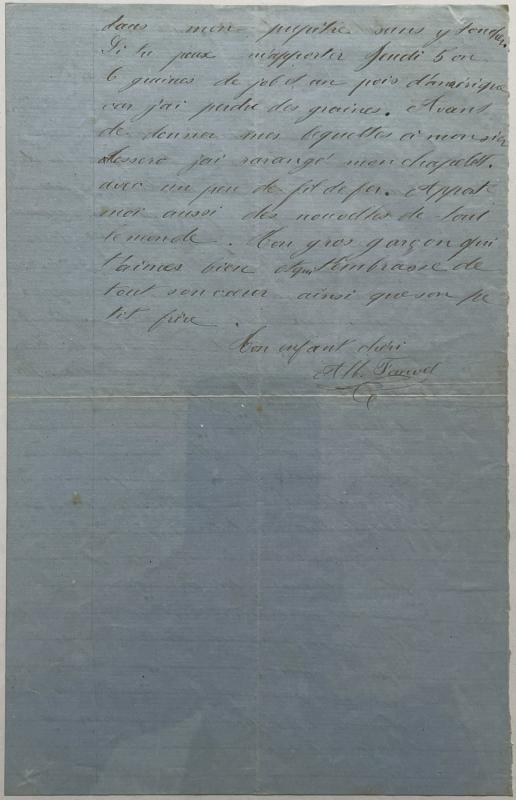 dans mon pupitre sans y toucher.
Si tu peux m'apporter Jeudi 5 ou
6 graines de job et un pois d'amérique
car j'ai perdu des graines. Avant
de donner mes bequelles à monsieur
j'ai rarangé mon chapelet.
avec un peu de fil de fer. Apporte
moi aussi des nouvelles de tout
le monde. Ton gros garçon qui
t'aimes bien et qui t'embrasse de
tout son cœur ainsi que son pe
tit frère.
Ton enfant chéri
Alb.